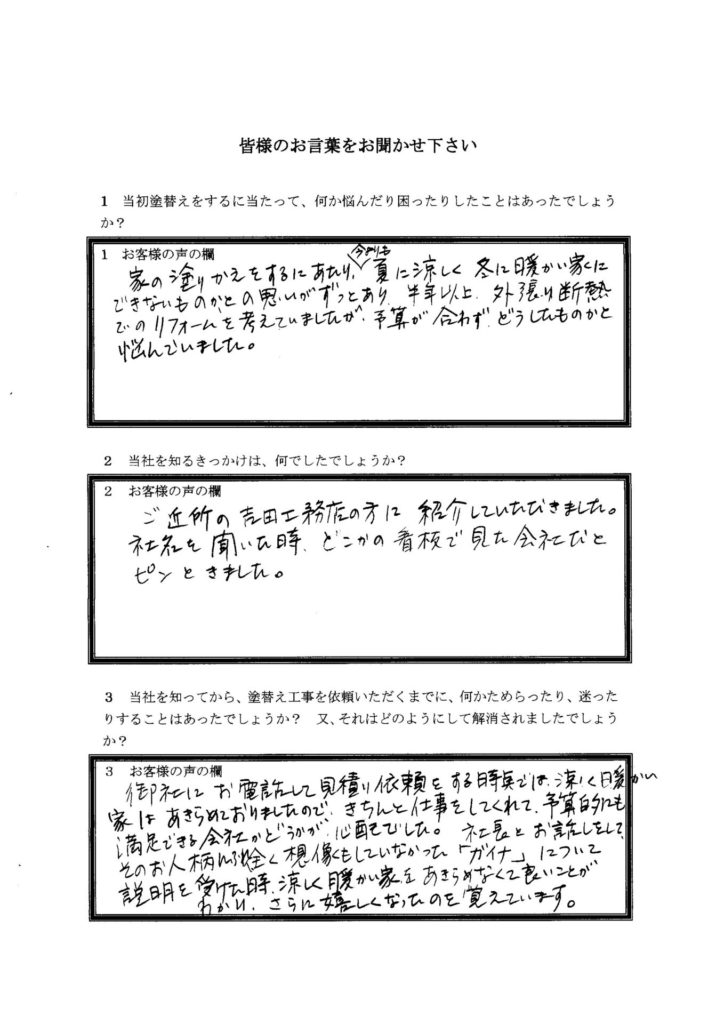 皆様のお言葉をお聞かせ下さい
1 当初塗替えをするに当たって、何か悩んだり困ったりしたことはあったでしょう
か?
1 お客様の声の欄
家の塗りかえをするにあたり、今よりも夏に涼しく 冬に暖かい家に
できないものかとの思いがずっとあり、半年以上、外張り断熱
でのリフォームを考えていましたが、予算が合わず、どうしたものかと
悩んでいました。
2 当社を知るきっかけは、何でしたでしょうか?
2 お客様の声の欄
ご近所の吉田工務店の方に 紹介していただきました。
社名を聞いた時、どこかの看板で見た会社だと
ピンときました。
3 当社を知ってから、塗替え工事を依頼いただくまでに、何かためらったり、迷った
りすることはあったでしょうか? 又、それはどのようにして解消されましたでしょう
か?
3 お客様の声の欄
御社にお電話して見積り依頼をする時点では、涼しく暖かい
家はあきらめておりましたので、きちんと仕事をしてくれて、予算的にも
満足できる会社かどうかが、心配でした。 社長とお話しをして、
そのお人柄 全く想像もしていなかった「ガイナ」について
説明を受けた時、涼しく暖かい家をあきらめなくて良いことが
わかり、さらに嬉しくなったのを覚えています。